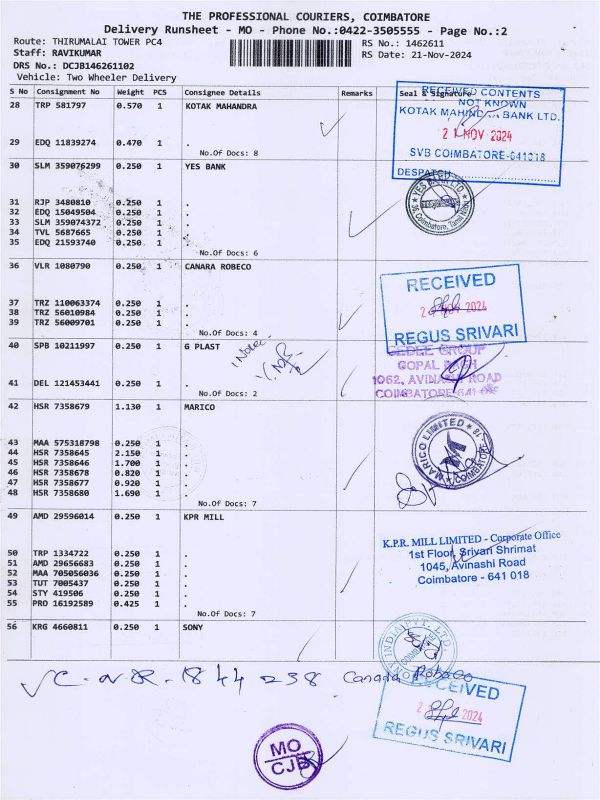 THE PROFESSIONAL COURIERS, COIMBATORE
Delivery Runsheet - MO - Phone No.:0422-3505555 - Page No.:2
Route: THIRUMALAI TOWER PC4
RS No.: 1462611
Staff: RAVIKUMAR
RS Date: 21-Nov-2024
DRS No.: DCJB146261102
Vehicle: Two Wheeler Delivery
S No Consignment No Weight PCS Consignee Details Remarks Seal & Signature
28 TRP 581797 0.570 1 KOTAK MAHANDRA
RECEIVED CONTENTS
NOT KNOWN
KOTAK MAHINDRA BANK LTD.
21 NOV 2024
SVB COIMBATORE-641018
DESPATCH
29 EDQ 11839274 0.470 1 .
No.Of Docs: 8
30 SLM 359076299 0.250 1 YES BANK
YES BANK LTD
Coimbatore, Tamil Nadu
31 RJP 3480810 0.250 1 .
32 EDQ 15049504 0.250 1 .
33 SLM 359074372 0.250 1 .
34 TVL 5687665 0.250 1 .
35 EDQ 21593740 0.250 1 .
No.Of Docs: 6
36 VLR 1080790 0.250 1 CANARA ROBECO
RECEIVED
2 NOV 2024
REGUS SRIVARI
37 TRZ 110063374 0.250 1 .
38 TRZ 56010984 0.250 1 .
39 TRZ 56009701 0.250 1 .
No.Of Docs: 4
40 SPB 10211997 0.250 1 G PLAST
GROUP
GOPAL BAGH
1062, AVINASHI ROAD
COIMBATORE-641
41 DEL 121453441 0.250 1 .
No.Of Docs: 2
42 HSR 7358679 1.130 1 MARICO
MARICO LIMITED
COIMBATORE - 18
43 MAA 575318798 0.250 1 .
44 HSR 7358645 2.150 1 .
45 HSR 7358646 1.700 1 .
46 HSR 7358678 0.820 1 .
47 HSR 7358677 0.920 1 .
48 HSR 7358680 1.690 1 .
No.Of Docs: 7
49 AMD 29596014 0.250 1 KPR MILL
K.P.R. MILL LIMITED - Corporate Office
1st Floor, Srivari Shrimat
1045, Avinashi Road
Coimbatore - 641 018
50 TRP 1334722 0.250 1 .
51 AMD 29656683 0.250 1 .
52 MAA 705056036 0.250 1 .
53 TUT 7005437 0.250 1 .
54 STY 419506 0.250 1 .
55 PRO 16192589 0.425 1 .
No.Of Docs: 7
56 KRG 4660811 0.250 1 SONY
INDIA PVT. LTD.
Canada Robaco
RECEIVED
2 2024
REGUS SRIVARI
MO
CJB